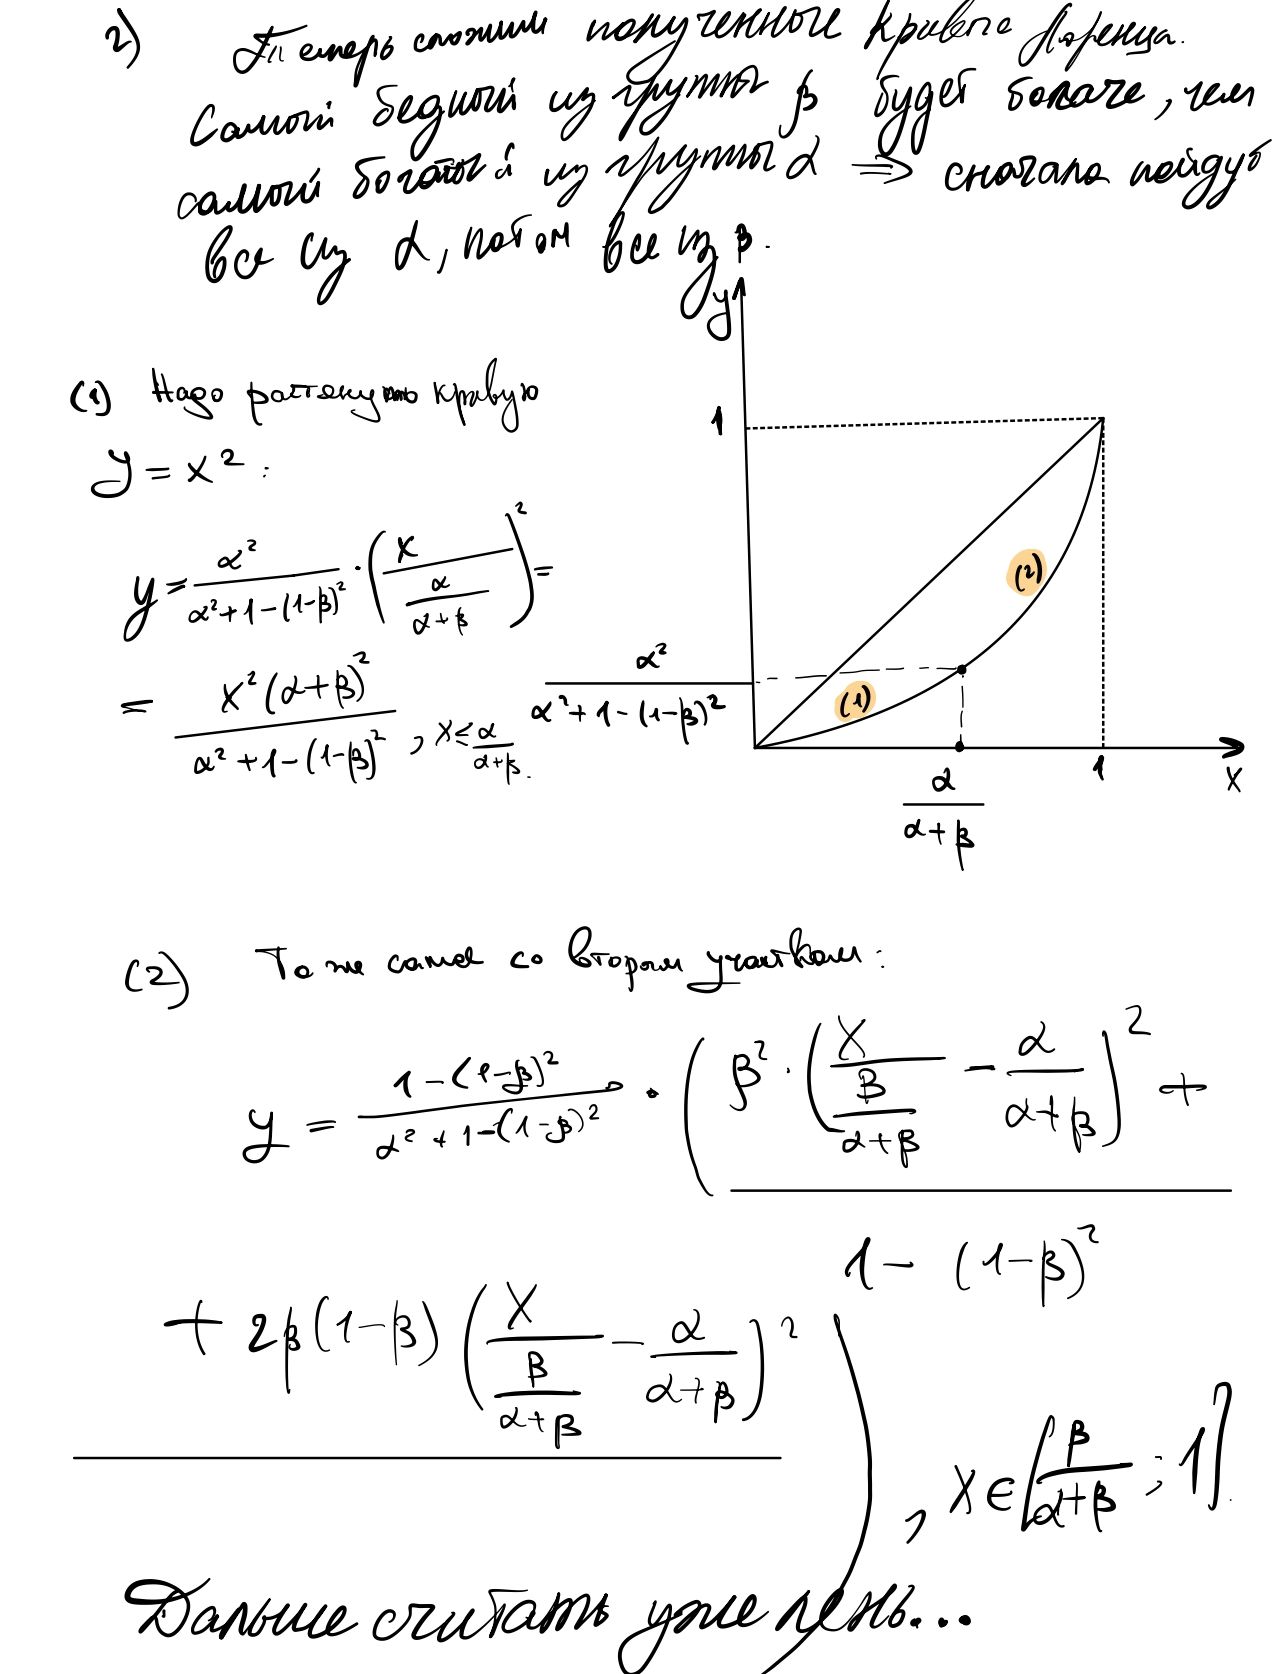 2) Теперь сложим полученные кривые Лоренца.
Самый бедный из группы β будет богаче, чем
самый богатый из группы α ⇒ сначала пойдут
все из α, потом все из β.
(1) Надо растянуть кривую
y = x² :
y = α² / (α² + 1 - (1-β)²) · (x / (α / (α+β)))² =
= x² (α+β)² / (α² + 1 - (1-β)²) , x ≤ α / (α+β).
y
1
(2)
(1)
α² / (α² + 1 - (1-β)²)
α / (α+β)
1
x
(2) То же самое со вторым участком:
y = (1 - (1-β)²) / (α² + 1 - (1-β)²) · ( β² · (x / (β / (α+β)) - α / (α+β))² +
1 - (1-β)²
+ 2β(1-β) (x / (β / (α+β)) - α / (α+β))² ) , x ∈ [β / (α+β) ; 1]
Дальше считать уже лень...